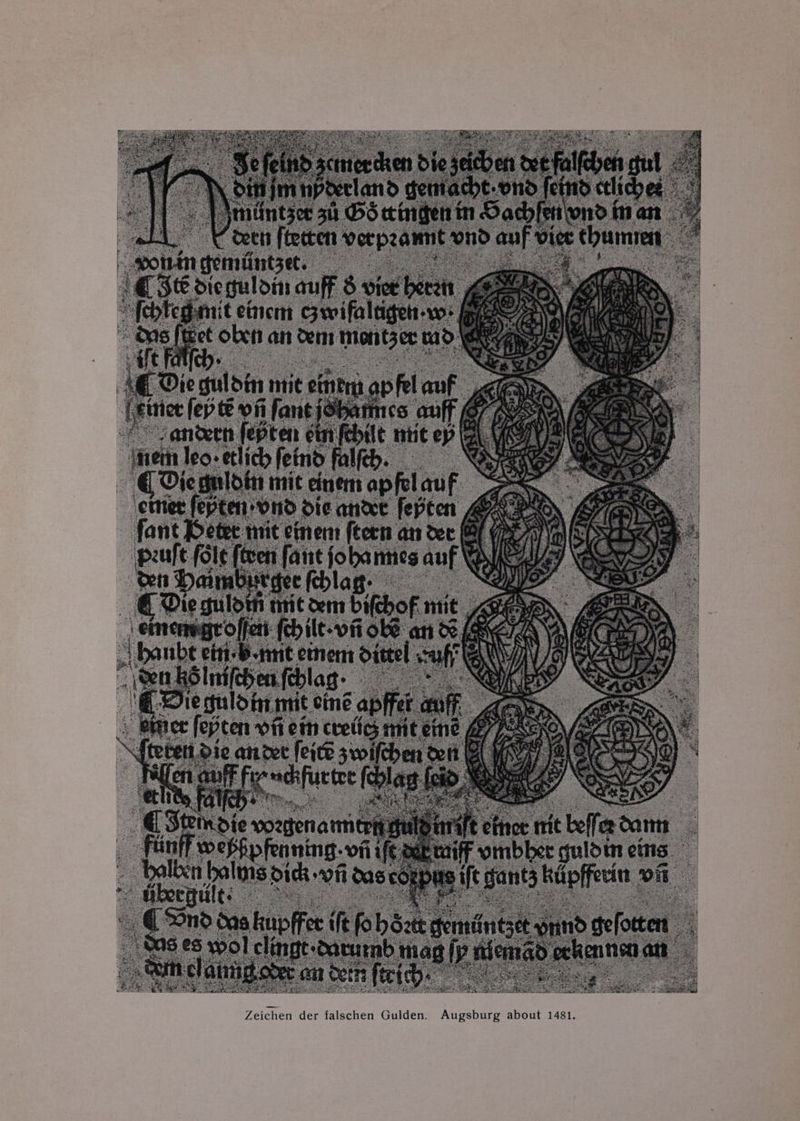 HJe seind zemercken die zeichen der falschen gul
din jm nyderland gemacht·vnd seind etlicher
müntzer zů Gôttingen in Sachsen vnd in an
dern stetten verprannt vnd auf vier thumren
von in gemüntzet.
¶ Itē die guldin auff ð vier herrn
schleg mit einem czwifaltigen·w·
das steet oben an dem mentzer rad
ist falsch·
¶ Die guldin mit einem apfel auf
einer seytē vñ sant johannes auff
andern seyten ein schilt mit ey
nem leo·etlich seind falsch.
¶ Die guldin mit einem apfel auf
einer seyten·vnd die ander seyten
sant Peter mit einem stern an der
prust sôlt steen sant johannes auf
den Haimburger schlag·
¶ Die guldiñ mit dem bischof mit
einem grossen schilt·vñ obē an dē
haubt ein·b·mit einem dittel auff
den kôlnischen schlag·
¶ Die guldin mit einē apffel auff
einer seyten vñ ein creücz mit einē
steren die ander seitē zwischen den
füssen auff franckfurter schlag seid
etlich falsch·
¶ Item die vorgenannten guldin ist einer nit besser dann
fünff weyßpfenning·vñ ist der raiff vmbher guldin eins
halben halms dick·vñ das corpus ist gantz küpfferin vñ
übergült·
¶ Vnd das kupffer ist so hôrtt gemüntzet vnnd gesotten
das es wol clingt·darumb mag sy niemād erkennen an
dem clanng oder an dem streich·
Zeichen der falschen Gulden. Augsburg about 1481.